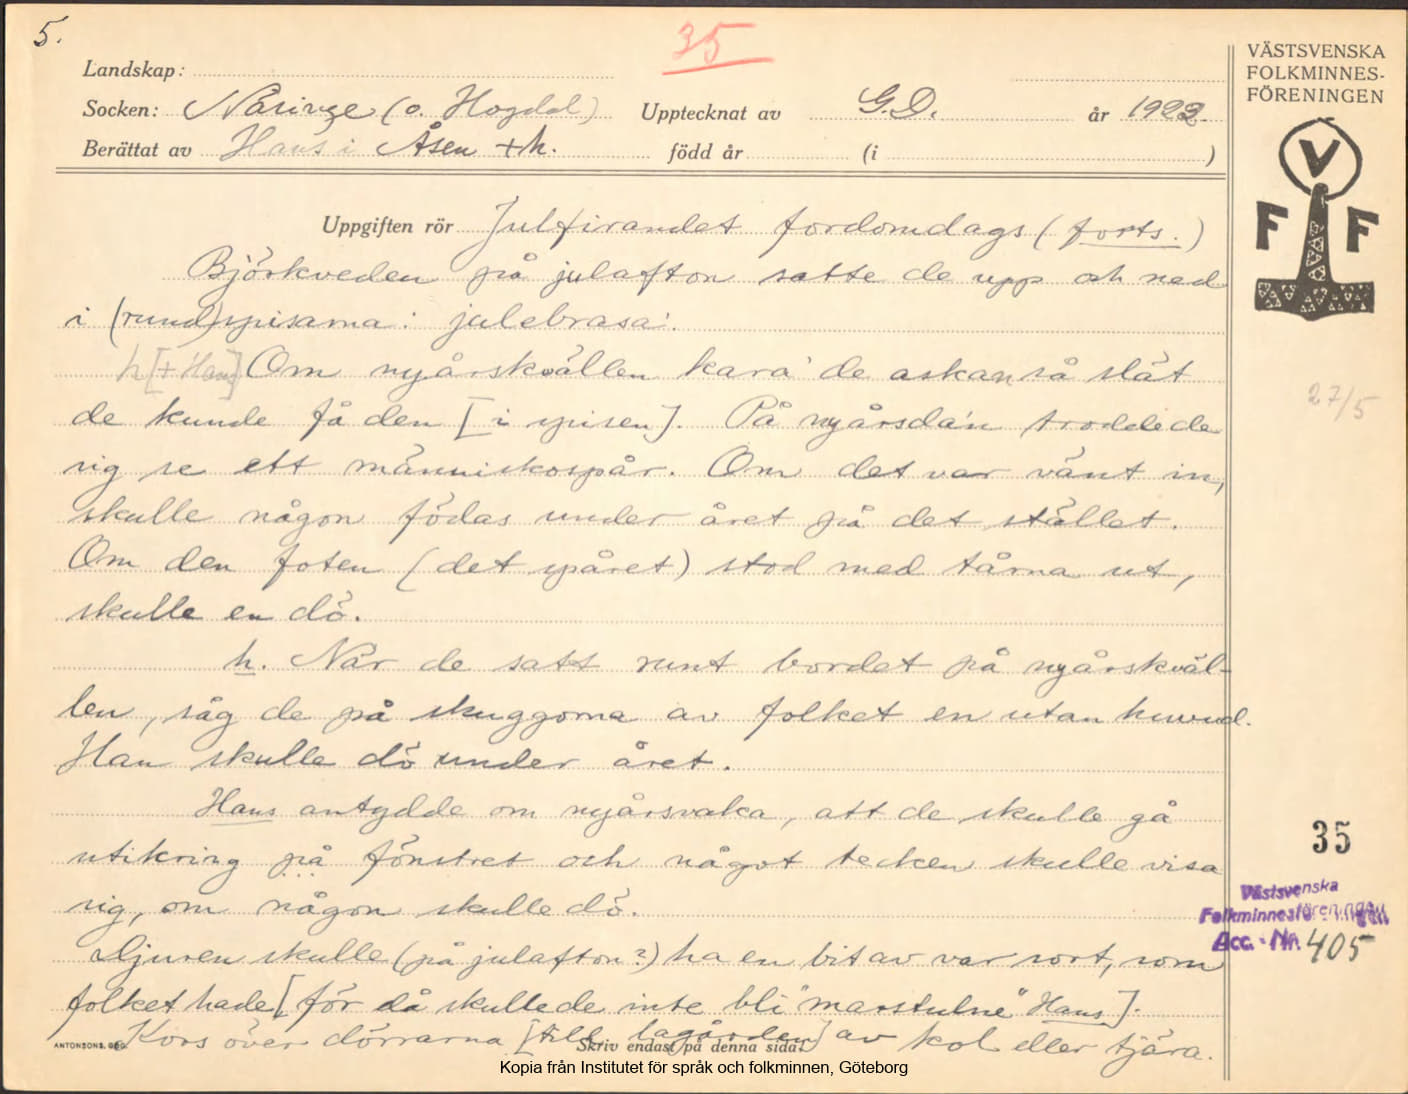 5.
35
Landskap:
Socken: Näringe (o. Hogdal) Upptecknat av G.D. år 1922
Berättat av Hans i Åsen + h. född år (i )
VÄSTSVENSKA
FOLKMINNES-
FÖRENINGEN
V
F F
Uppgiften rör Julfirandet fordomdags (forts.)
Björkveden på julafton satte de upp och ned
i (rund)spisarna: julebrasa'.
h [+ Hans] Om nyårskvällen kara' de askan så slät
de kunde få den [i spisen]. På nyårsda'n trodde de
sig se ett människospår. Om det var vänt in,
skulle någon födas under året på det stället.
Om den foten (det spåret) stod med tårna ut,
skulle en dö.
h. När de satt runt bordet på nyårskväl-
len, såg de på skuggorna av folket en utan huvud.
Han skulle dö under året.
Hans antydde om nyårsvaka, att de skulle gå
utikring på fönstret och något tecken skulle visa
sig, om någon skulle dö.
Djuren skulle (på julafton?) ha en bit av var sort, som
folket hade [för då skulle de inte bli "marstulne" Hans].
Kors över dörrarna [till lagården] av kol eller tjära.
27/5
35
Västsvenska
Folkminnesföreningen
Acc. - Nr. 405
ANTONSONS, GBG.
Skriv endast på denna sida!
Kopia från Institutet för språk och folkminnen, Göteborg